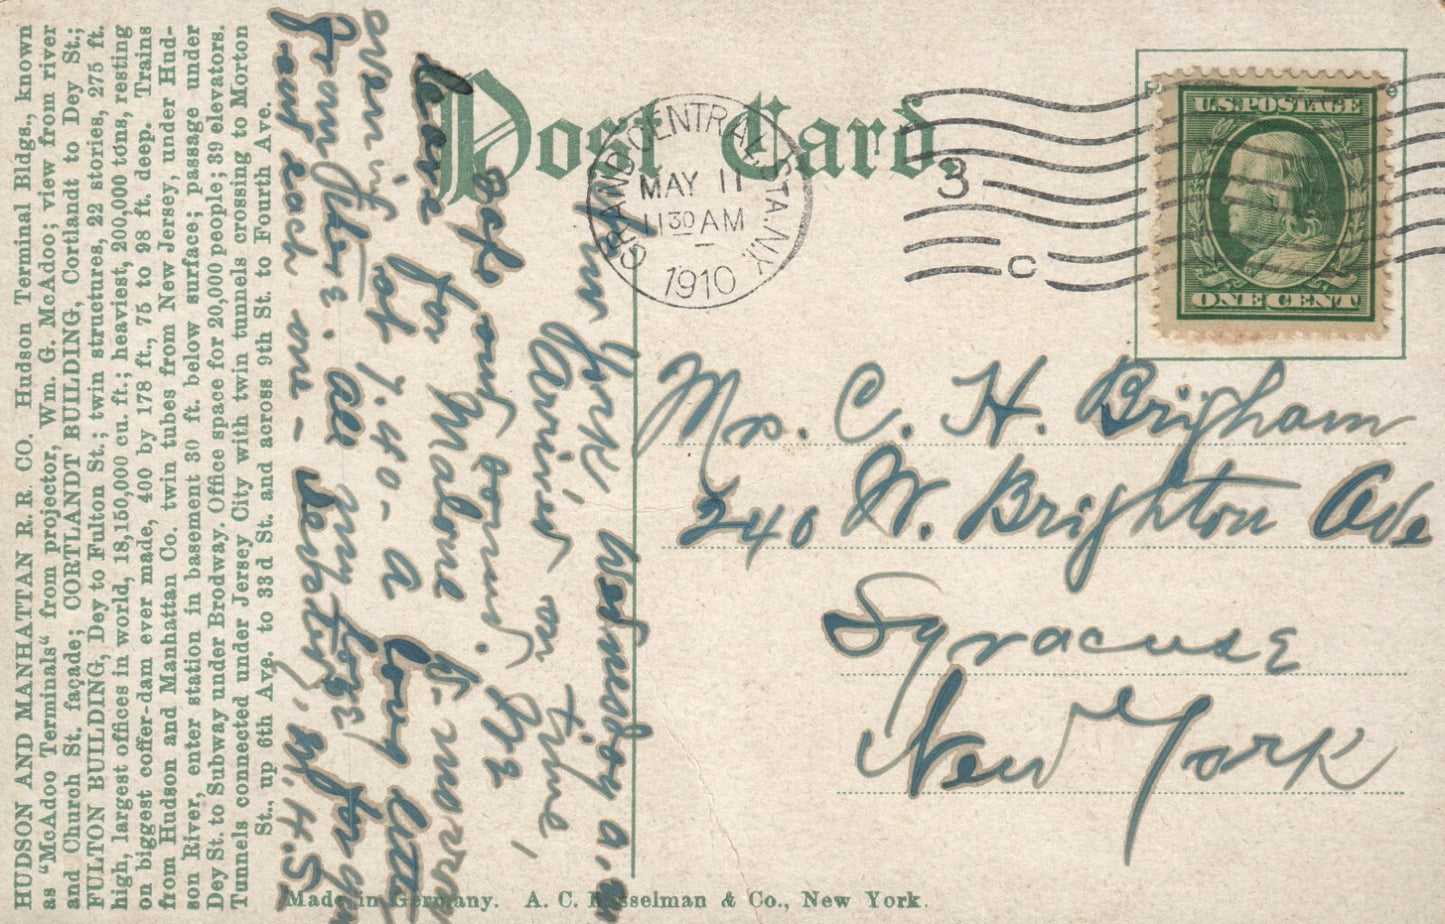 HUDSON AND MANHATTAN R. R. CO. Hudson Terminal Bldgs., known
as "McAdoo Terminals" from projector, Wm. G. McAdoo; view from river
and Church St. façade; CORTLANDT BUILDING, Cortlandt to Dey St.;
FULTON BUILDING, Dey to Fulton St.; twin structures, 22 stories, 275 ft.
high, largest offices in world, 18,150,000 cu. ft.; heaviest, 200,000 tons, resting
on biggest coffer-dam ever made, 400 by 178 ft., 75 to 98 ft. deep. Trains
from Hudson and Manhattan Co. twin tubes from New Jersey, under Hud-
son River, enter station in basement 30 ft. below surface; passage under
Dey St. to Subway under Brodway. Office space for 20,000 people; 39 elevators.
Tunnels connected under Jersey City with twin tunnels crossing to Morton
St., up 6th Ave. to 33d St. and across 9th St. to Fourth Ave.
Post Card.
GRAND CENTRAL STA. N.Y.
MAY 11
11 30 AM
1910
3
C
U.S. POSTAGE
ONE CENT
New York, Wednesday a.m
Arrived on time,
safe and sound. We
leave for Malone
evening at 7.40 - a long letter
from there. all my love for you
and each one - Lehstg, W.H.S.
Mrs. C. H. Brigham
240 W. Brighton Ave
Syracuse
New York
Made in Germany. A. C. Bosselman & Co., New York.